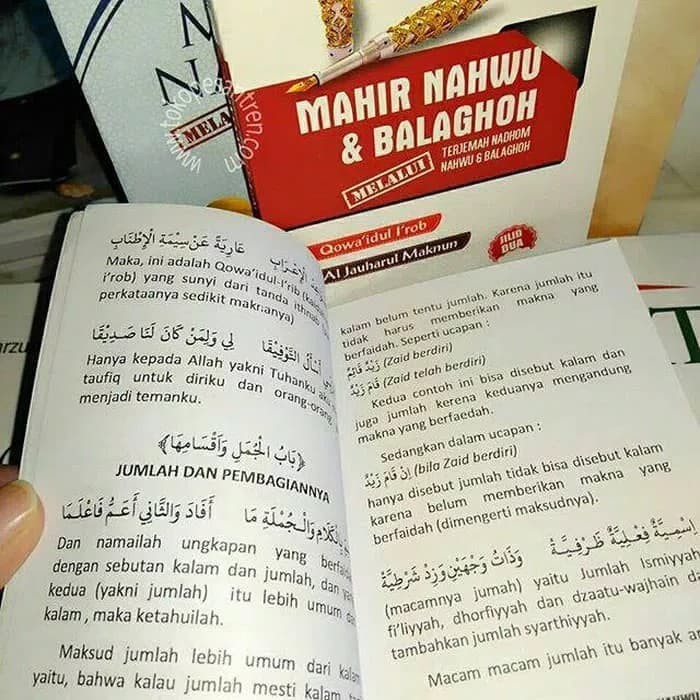 www.tokopesantren.com
MELA
MAHIR NAHWU
& BALAGHOH
MELALUI
TERJEMAH NADHOM
NAHWU & BALAGHOH
Qowa'idul I'rob
Al Jauharul Maknun
JILID
DUA
عَارِيَةً عَنْ سِيْمَةِ الْإِطْنَابِ
Maka, ini adalah Qowa'idul-I'rib (kaidah
i'rob) yang sunyi dari tanda ithnab
perkataanya sedikit maknanya)
أَسْأَلُ التَّوْفِيْقَا لِي وَلِمَنْ كَانَ لَنَا صَدِيْقَا
Hanya kepada Allah yakni Tuhanku aku
taufiq untuk diriku dan orang-orang
menjadi temanku.
﴿بَابُ الْجُمَلِ وَأَقْسَامِهَا﴾
JUMLAH DAN PEMBAGIANNYA
بِالْكَلَامِ وَالْجُمْلَةِ مَا أَفَادَ وَالثَّانِي أَعَمُّ فَاعْلَمَا
Dan namailah ungkapan yang berfai
dengan sebutan kalam dan jumlah, dan yang
kedua (yakni jumlah) itu lebih umum da
kalam , maka ketahuilah.
Maksud jumlah lebih umum dari kalam
yaitu, bahwa kalau jumlah mesti kalam ta
kalam belum tentu jumlah. Karena jumlah itu
tidak harus memberikan makna yang
berfaidah. Seperti ucapan :
زَيْدٌ قَائِمٌ (Zaid berdiri)
قَامَ زَيْدٌ (Zaid telah berdiri)
Kedua contoh ini bisa disebut kalam dan
juga jumlah kerena keduanya mengandung
makna yang berfaedah.
Sedangkan dalam ucapan :
إِنْ قَامَ زَيْدٌ (bila Zaid berdiri)
hanya disebut jumlah tidak bisa disebut kalam
karena belum memberikan makna yang
berfaidah (dimengerti maksudnya).
اِسْمِيَّةٌ فِعْلِيَّةٌ ظَرْفِيَّةْ وَذَاتُ وَجْهَيْنِ وَزِدْ شَرْطِيَّةْ
(macamnya jumah) yaitu Jumlah Ismiyyah
fi'liyyah, dhorfiyyah dan dzaatu-wajhain da
tambahkan jumlah syarthiyyah.
Macam macam jumlah itu banyak an